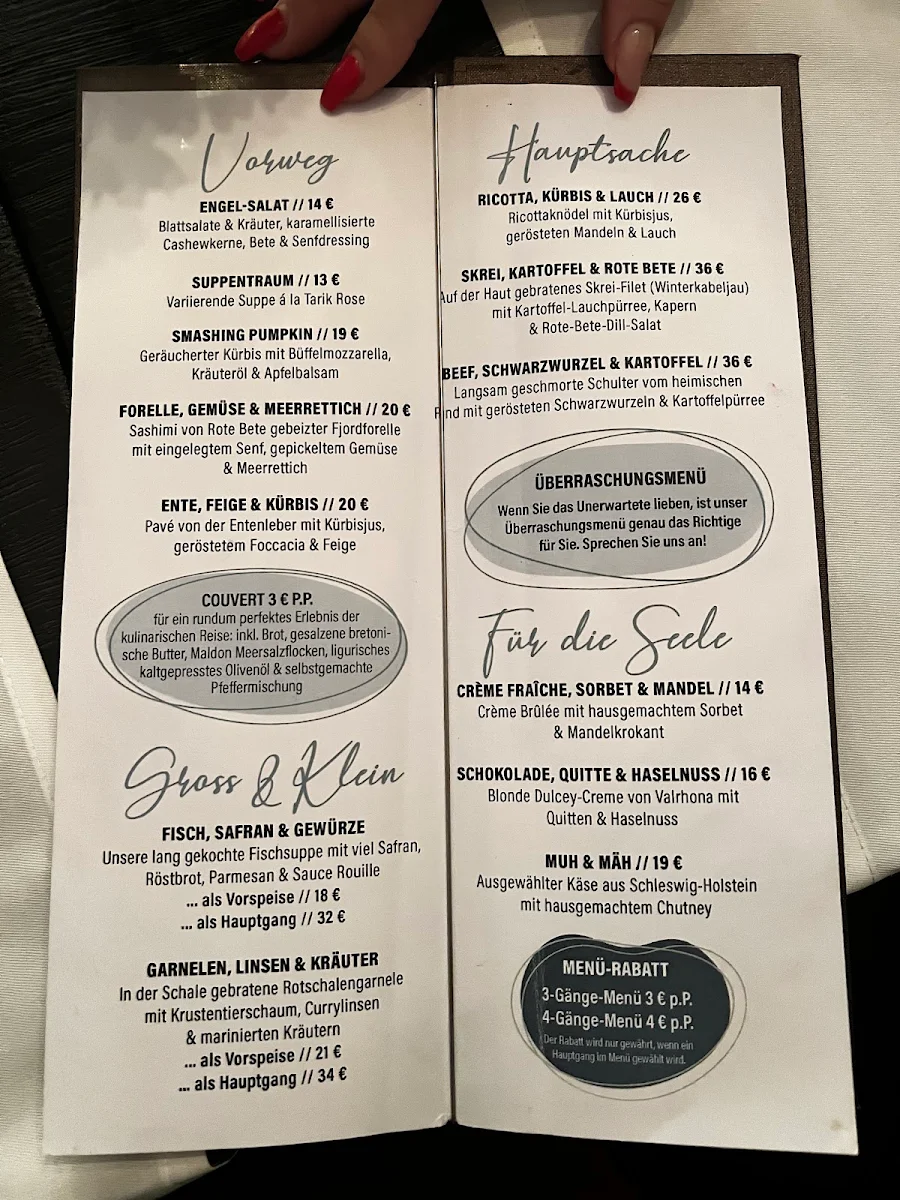 Vorweg
ENGEL-SALAT // 14 €
Blattsalate & Kräuter, karamellisierte
Cashewkerne, Bete & Senfdressing
SUPPENTRAUM // 13 €
Variierende Suppe á la Tarik Rose
SMASHING PUMPKIN // 19 €
Geräucherter Kürbis mit Büffelmozzarella,
Kräuteröl & Apfelbalsam
FORELLE, GEMÜSE & MEERRETTICH // 20 €
Sashimi von Rote Bete gebeizter Fjordforelle
mit eingelegtem Senf, gepickeltem Gemüse
& Meerrettich
ENTE, FEIGE & KÜRBIS // 20 €
Pavé von der Entenleber mit Kürbisjus,
geröstetem Foccacia & Feige
COUVERT 3 € P.P.
für ein rundum perfektes Erlebnis der
kulinarischen Reise: inkl. Brot, gesalzene bretoni-
sche Butter, Maldon Meersalzflocken, ligurisches
kaltgepresstes Olivenöl & selbstgemachte
Pfeffermischung
Gross & Klein
FISCH, SAFRAN & GEWÜRZE
Unsere lang gekochte Fischsuppe mit viel Safran,
Röstbrot, Parmesan & Sauce Rouille
... als Vorspeise // 18 €
... als Hauptgang // 32 €
GARNELEN, LINSEN & KRÄUTER
In der Schale gebratene Rotschalengarnele
mit Krustentierschaum, Currylinsen
& marinierten Kräutern
... als Vorspeise // 21 €
... als Hauptgang // 34 €
Hauptsache
RICOTTA, KÜRBIS & LAUCH // 26 €
Ricottaknödel mit Kürbisjus,
gerösteten Mandeln & Lauch
SKREI, KARTOFFEL & ROTE BETE // 36 €
Auf der Haut gebratenes Skrei-Filet (Winterkabeljau)
mit Kartoffel-Lauchpürree, Kapern
& Rote-Bete-Dill-Salat
BEEF, SCHWARZWURZEL & KARTOFFEL // 36 €
Langsam geschmorte Schulter vom heimischen
Rind mit gerösteten Schwarzwurzeln & Kartoffelpürree
ÜBERRASCHUNGSMENÜ
Wenn Sie das Unerwartete lieben, ist unser
Überraschungsmenü genau das Richtige
für Sie. Sprechen Sie uns an!
Für die Seele
CRÈME FRAÎCHE, SORBET & MANDEL // 14 €
Crème Brûlée mit hausgemachtem Sorbet
& Mandelkrokant
SCHOKOLADE, QUITTE & HASELNUSS // 16 €
Blonde Dulcey-Creme von Valrhona mit
Quitten & Haselnuss
MUH & MÄH // 19 €
Ausgewählter Käse aus Schleswig-Holstein
mit hausgemachtem Chutney
MENÜ-RABATT
3-Gänge-Menü 3 € p.P.
4-Gänge-Menü 4 € p.P.
Der Rabatt wird nur gewährt, wenn ein
Hauptgang im Menü gewählt wird.